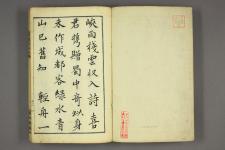 峽雨棧雲収入詩喜
君獲贈蜀中奇如身
未作成都客緑水青
山已舊知 輕舟一